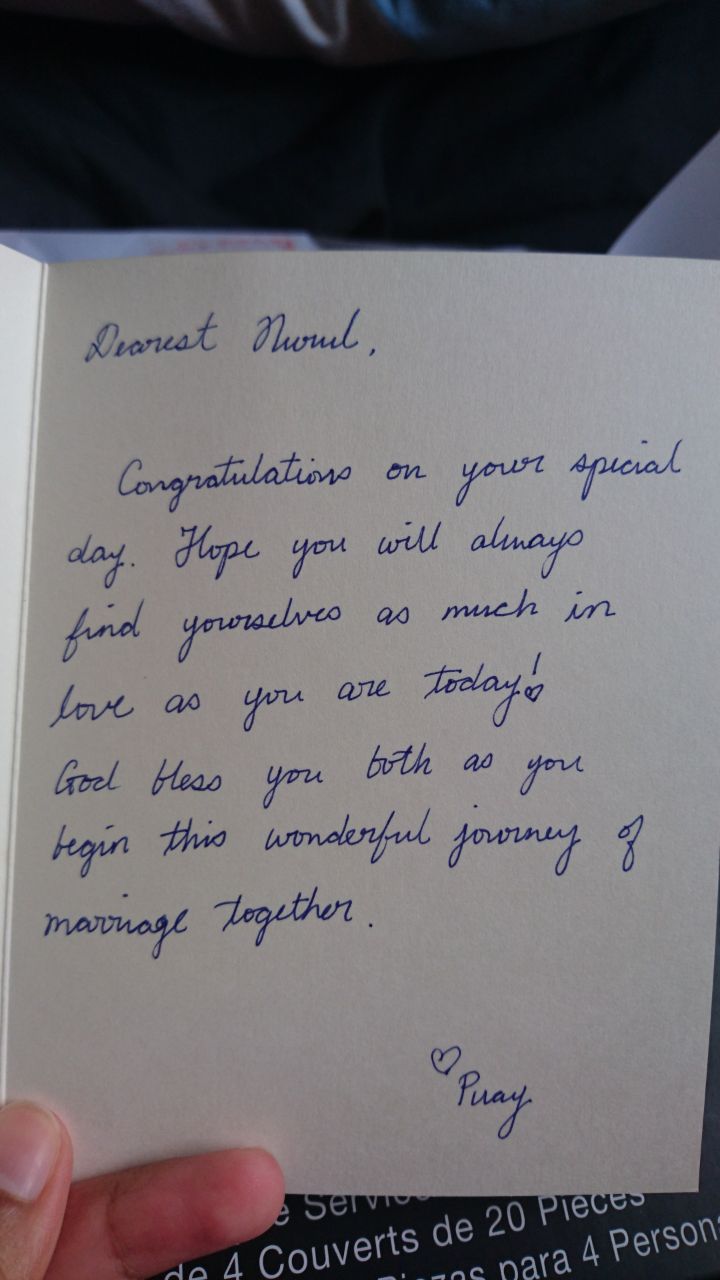 Dearest Nurul,
Congratulations on your special
day. Hope you will always
find yourselves as much in
love as you are today!
God bless you both as you
begin this wonderful journey of
marriage together.
♡
Puay
Service
de 4 Couverts de 20 Pièces
Piezas para 4 Persona